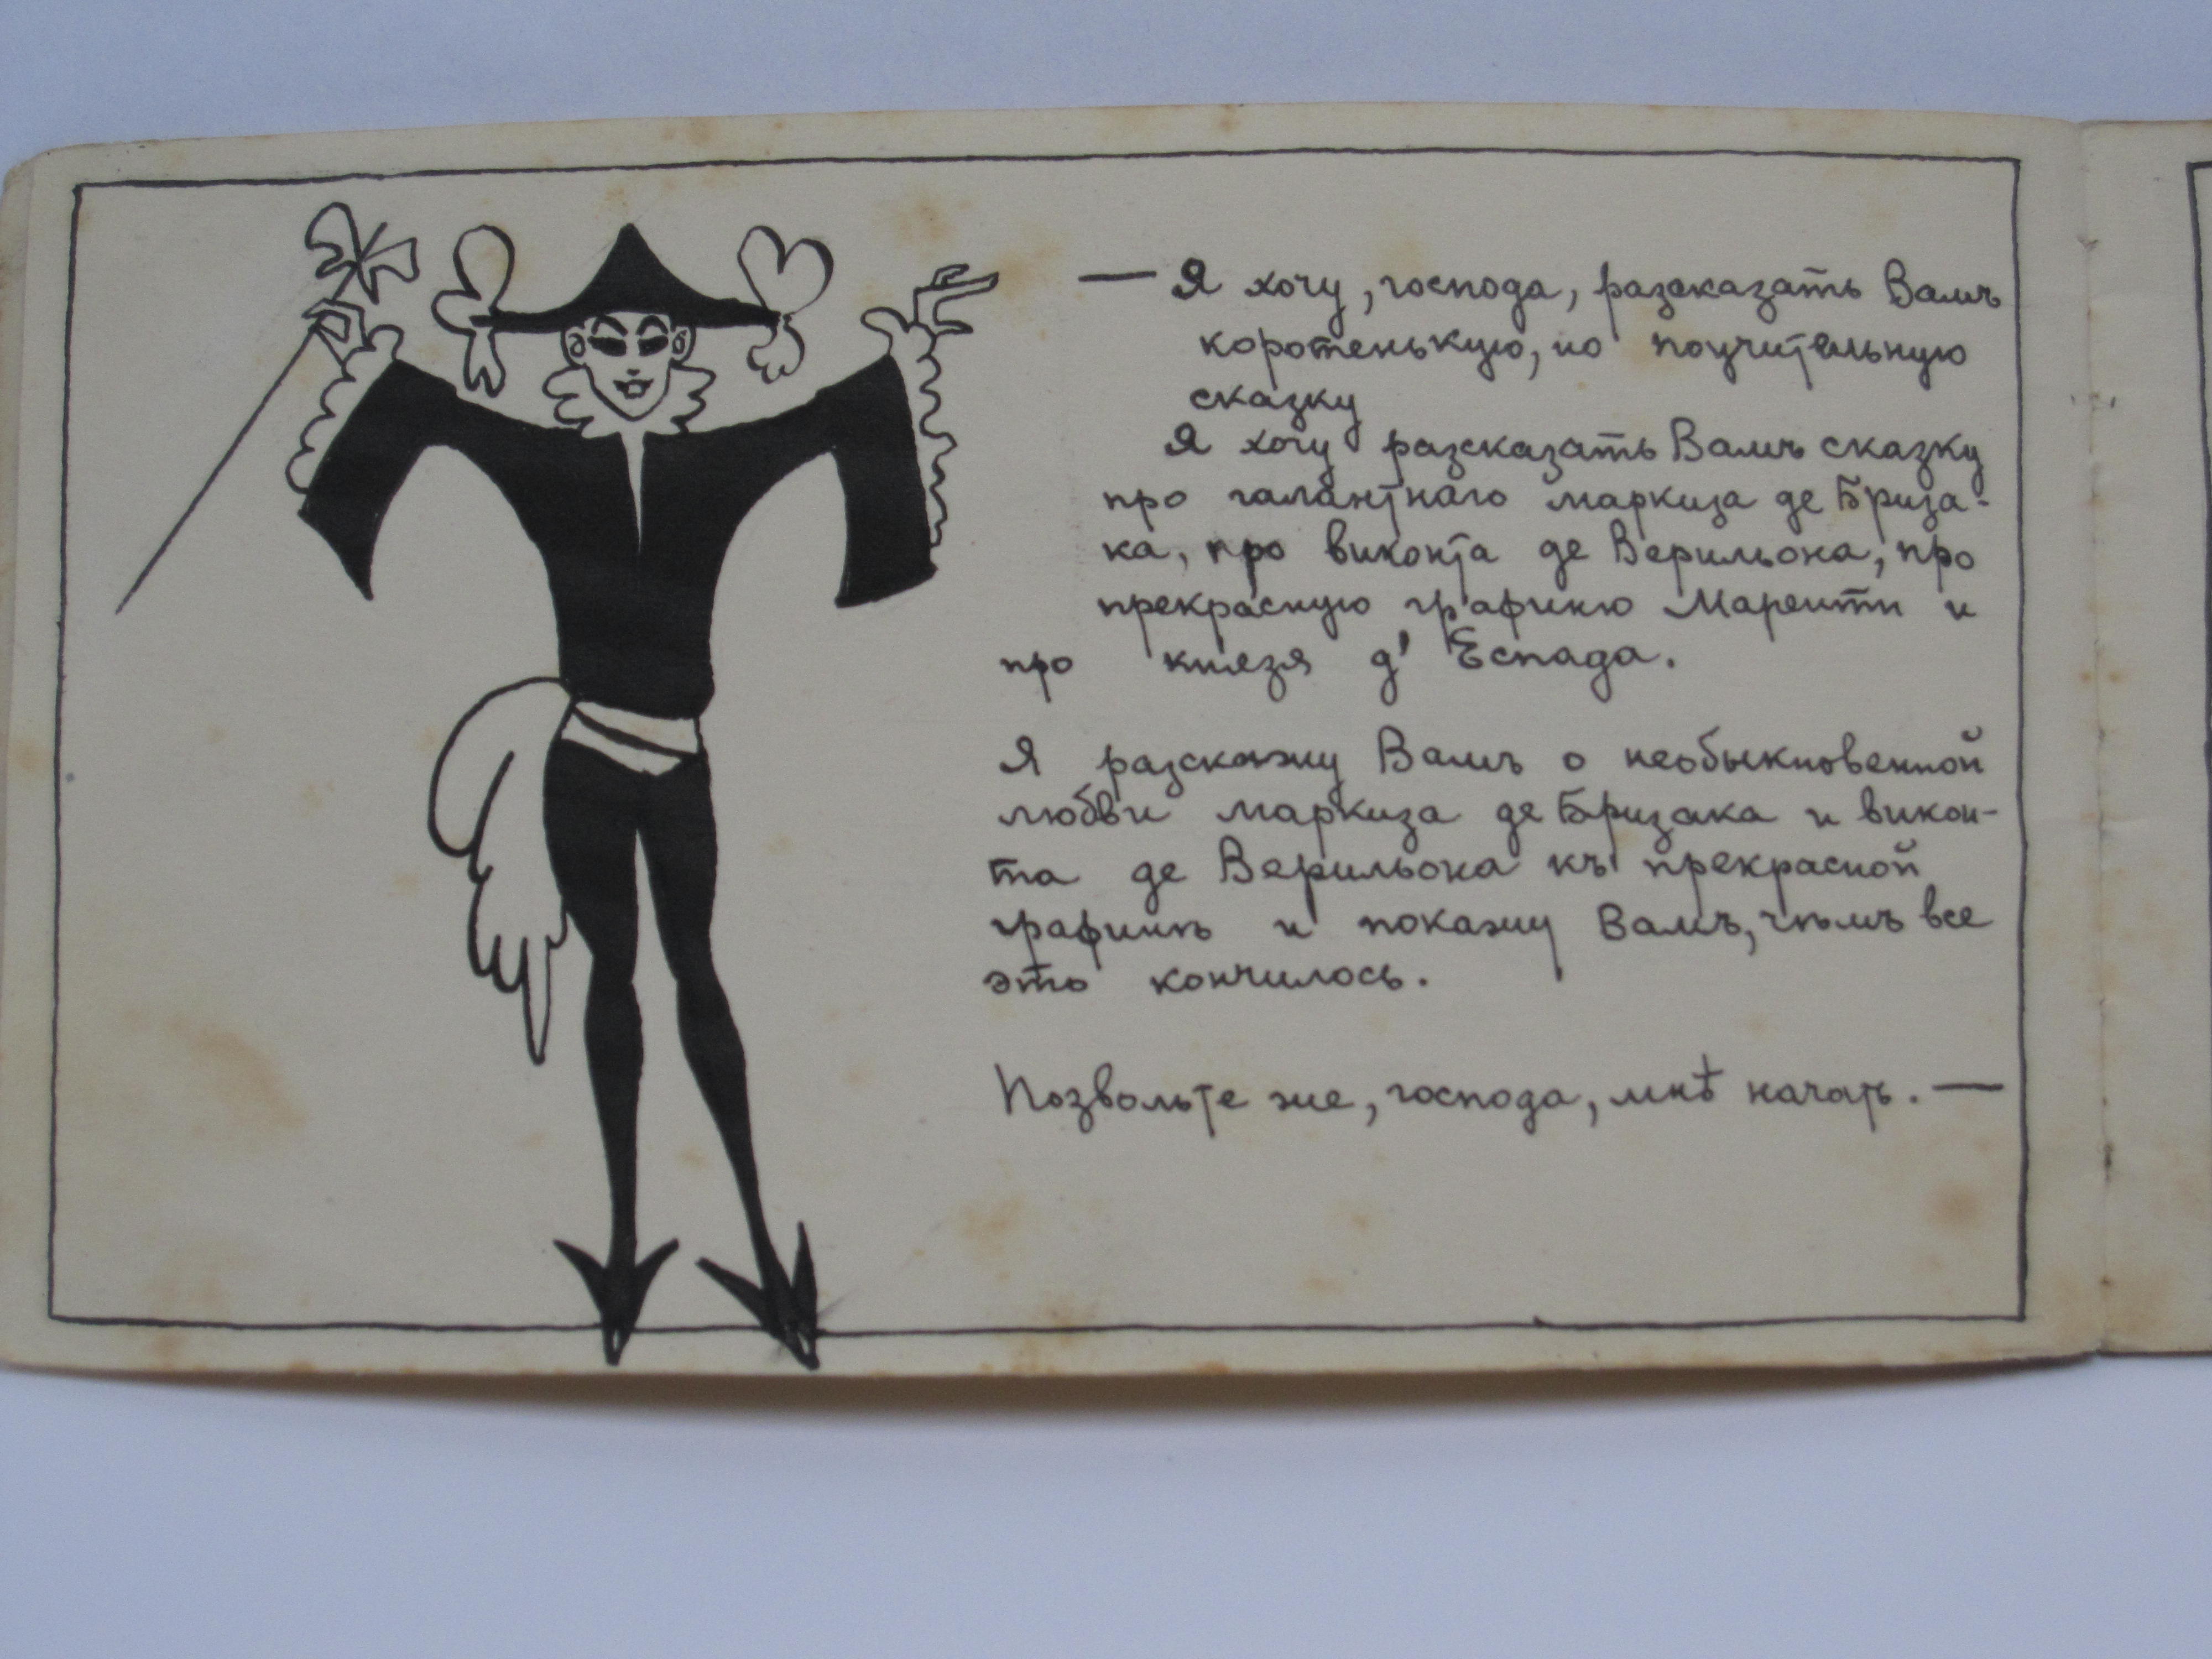 — Я хочу, господа, разсказать Вамъ
коротенькую, но поучительную
сказку
Я хочу разсказать Вамъ сказку
про галантнаго маркиза де Бриза-
ка, про виконта де Верильона, про
прекрасную графиню Маренти и
про князя д' Еспада.
Я разскажу Вамъ о необыкновенной
любви маркиза де Бризака и викон-
та де Верильона къ прекрасной
графинѣ и покажу Вамъ, чѣмъ все
это кончилось.
Позвольте же, господа, мнѣ начать. —